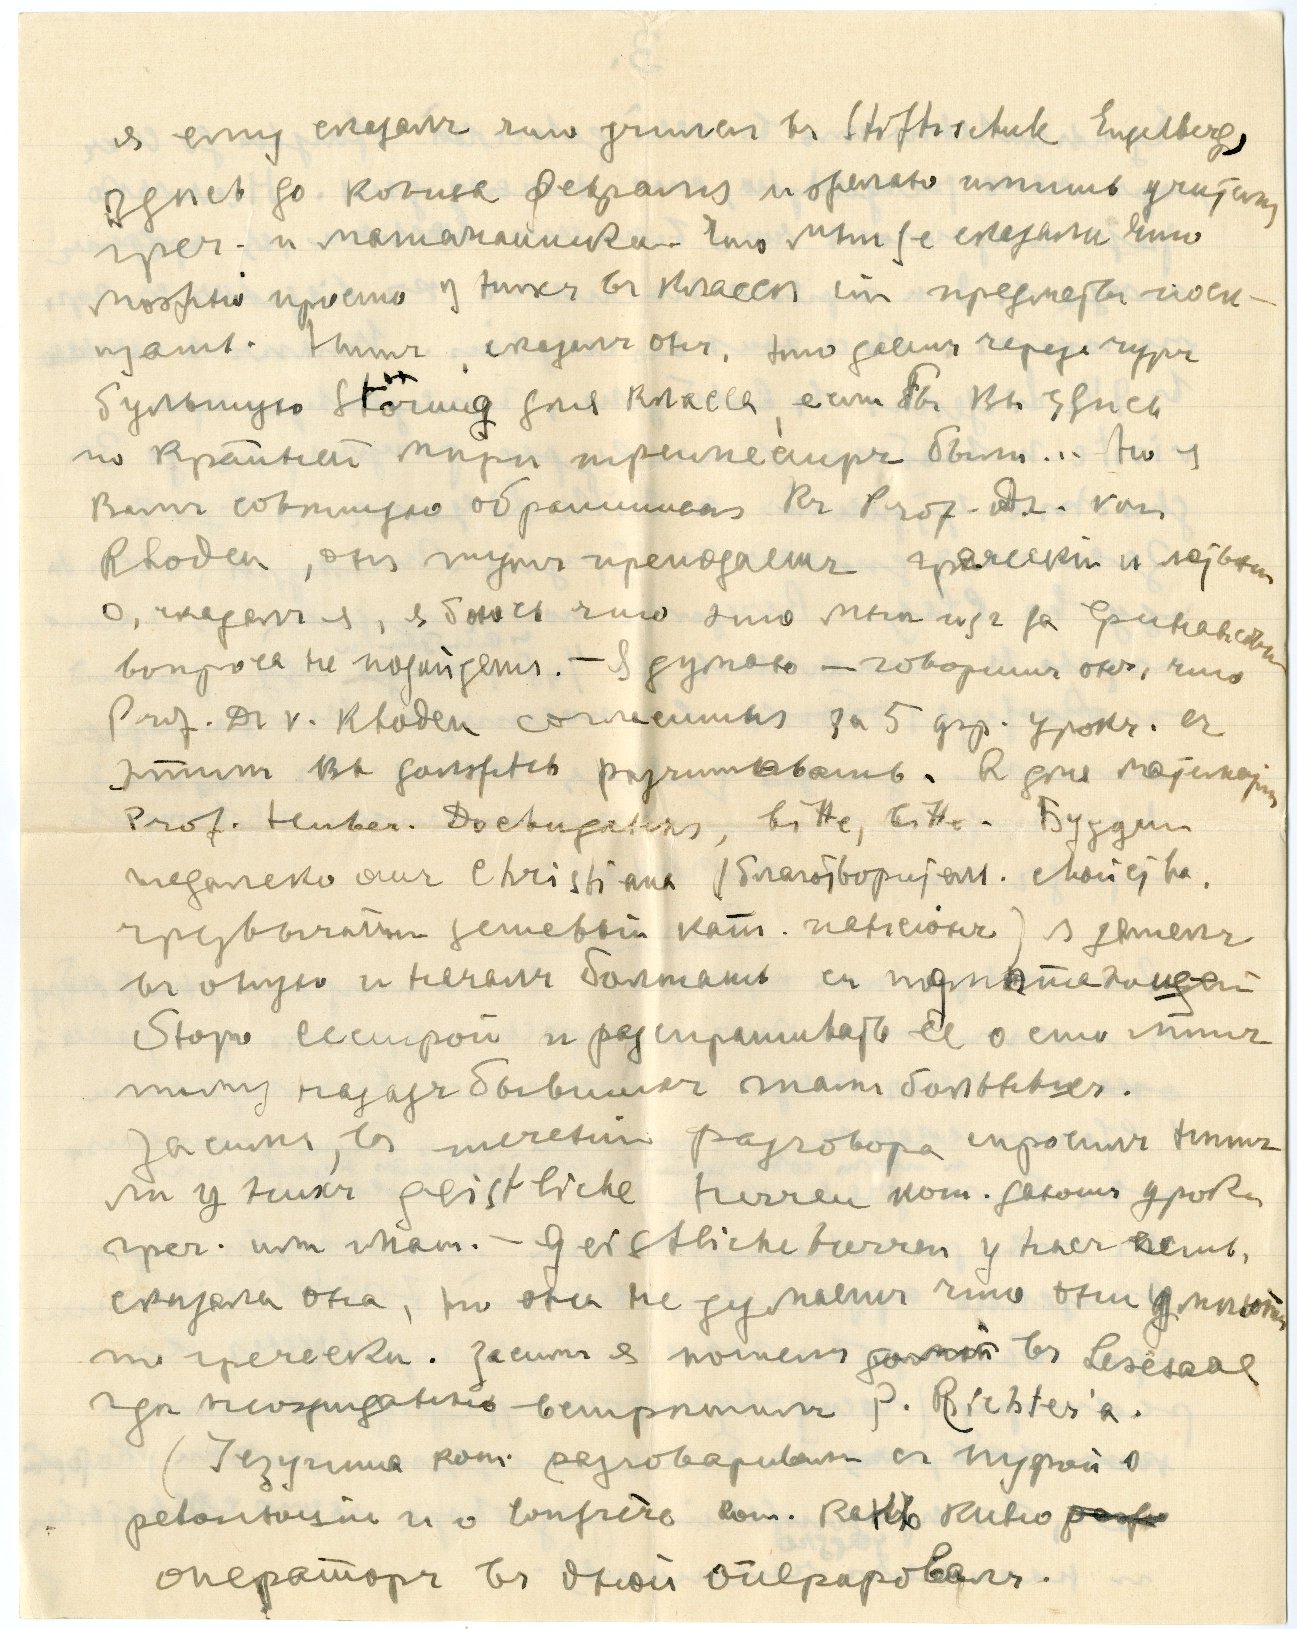 я ему сказалъ что учился въ Stiftschule Engelberg,
здѣсь до конца февраля и желаю имѣть учителя
греч. и математики. Что мнѣ де сказали что
можно просто у нихъ въ классѣ сіи предметы посѣ-
щать. Нѣтъ, сказалъ онъ, это даетъ черезъ чуръ
большую Störung для класса, если бы вы здѣсь
по крайней мѣрѣ триместръ были... Но я
вамъ совѣтую обратиться къ Prof. Dr. von
Rhoden, онъ тутъ преподаетъ греческій и латын
О, сказалъ я, я боюсь что это мнѣ изъ за финансовы
вопроса не подойдетъ. — Я думаю — говоритъ онъ, что
Prof. Dr v. Rhoden согласится за 5 фр. урокъ. съ
этимъ вы должны разчитывать. А для математ
Prof. Huber. Досвидания, bitte, bitte. Будучи
недалеко отъ Christiana (благотворительн. свойства,
чрезвычайно дешевый кат. пенсіонъ) я зашелъ
въ оную и началъ болтать съ
stары сестрой и разспрашивать ее о сто лѣтъ
тому назадъ бывшихъ тамъ больныхъ.
Засимъ, въ теченіи разговора спросилъ нѣтъ
ли у нихъ geistliche Herren кот. даютъ уроки
греч. или матем. — Geistliche Herren у насъ есть,
сказала она, но она не думаетъ что они умѣютъ
по гречески. Засимъ я пошелъ домой въ Lesesaal
гдѣ неожиданно встрѣтилъ P. Richter'а.
(Іезуита кот. разговаривалъ съ Мурой о
революціи и о confrère кот.
операторъ въ оперировалъ.